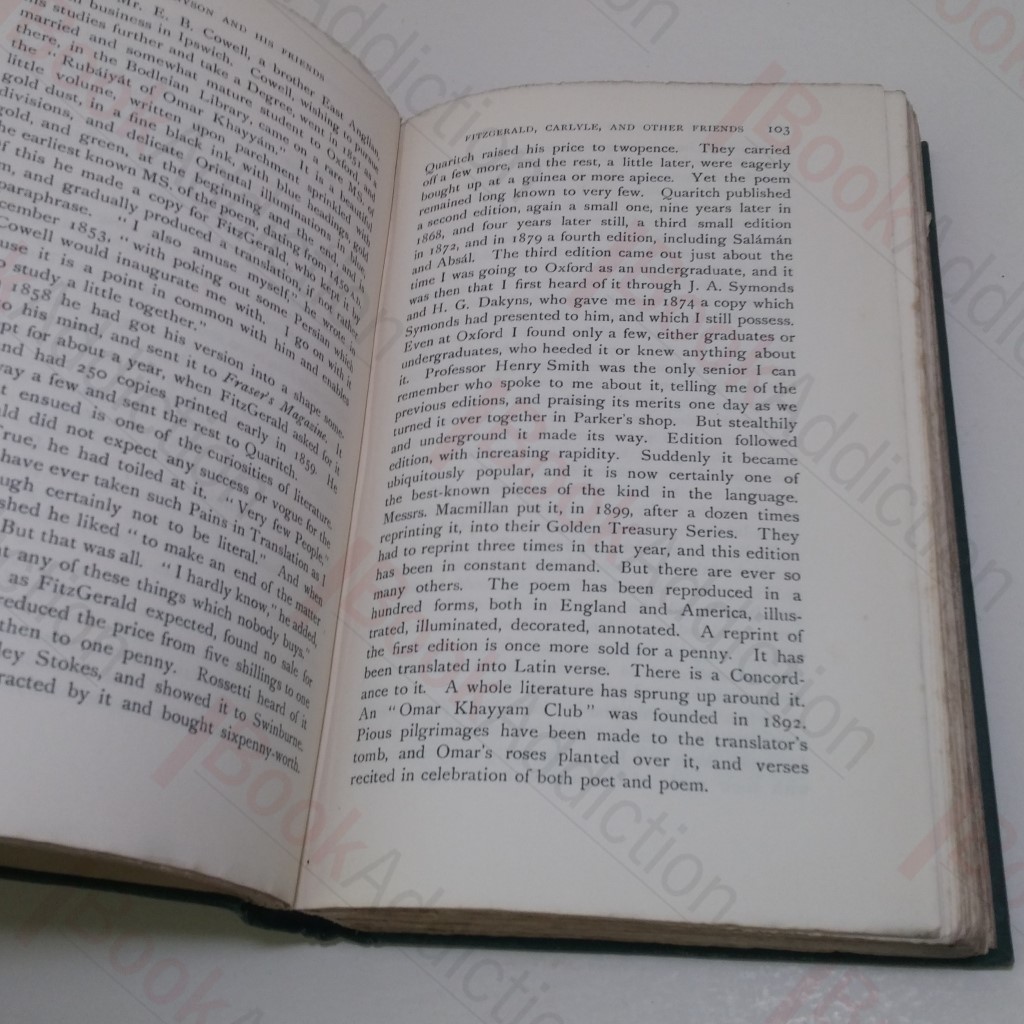 NYSON AND HIS FRIENDS
Mr. E. B. Cowell, a brother East Anglian
business in Ipswich. Cowell, wishing to pursue
his studies further and take a Degree, went in 1851 as a
married and somewhat mature student to Oxford, and
there, in the Bodleian Library, came on a rare MS. of
the "Rubáiyát of Omar Khayyám." It is a beautiful
little volume, written upon parchment sprinkled with
gold dust, in a fine black ink, with blue headings, gold
divisions, and delicate Oriental illuminations in blue,
gold, and green, at the beginning and the end, and is
the earliest known MS. of the poem, dating from 1450 A.D.
if this he made a copy for FitzGerald, who kept it by
m, and gradually produced a translation, if not rather
paraphrase. "I also amuse myself," he wrote in
cember 1853, "with poking out some Persian which
Cowell would inaugurate me with. I go on with it
use it is a point in common with him and enables
o study a little together."
1858 he had got his version into a shape some-
o his mind, and sent it to Fraser's Magazine. It
pt for about a year, when FitzGerald asked for it
nd had 250 copies printed early in 1859. He
way a few and sent the rest to Quaritch.
t ensued is one of the curiosities of literature.
ald did not expect any success or vogue for the
True, he had toiled at it. "Very few People,"
have ever taken such Pains in Translation as I
ugh certainly not to be literal." And when
shed he liked "to make an end of the matter
But that was all. "I hardly know," he added,
t any of these things which nobody buys."
as FitzGerald expected, found no sale for
reduced the price from five shillings to one
then to one penny. Rossetti heard of it
ley Stokes, and showed it to Swinburne.
racted by it and bought sixpenny-worth.
FITZGERALD, CARLYLE, AND OTHER FRIENDS 103
Quaritch raised his price to twopence. They carried
off a few more, and the rest, a little later, were eagerly
bought up at a guinea or more apiece. Yet the poem
remained long known to very few. Quaritch published
a second edition, again a small one, nine years later in
1868, and four years later still, a third small edition
in 1872, and in 1879 a fourth edition, including Salámán
and Absál. The third edition came out just about the
time I was going to Oxford as an undergraduate, and it
was then that I first heard of it through J. A. Symonds
and H. G. Dakyns, who gave me in 1874 a copy which
Symonds had presented to him, and which I still possess.
Even at Oxford I found only a few, either graduates or
undergraduates, who heeded it or knew anything about
it. Professor Henry Smith was the only senior I can
remember who spoke to me about it, telling me of the
previous editions, and praising its merits one day as we
turned it over together in Parker's shop. But stealthily
and underground it made its way. Edition followed
edition, with increasing rapidity. Suddenly it became
ubiquitously popular, and it is now certainly one of
the best-known pieces of the kind in the language.
Messrs. Macmillan put it, in 1899, after a dozen times
reprinting it, into their Golden Treasury Series. They
had to reprint three times in that year, and this edition
has been in constant demand. But there are ever so
many others. The poem has been reproduced in a
hundred forms, both in England and America, illus-
trated, illuminated, decorated, annotated. A reprint of
the first edition is once more sold for a penny. It has
been translated into Latin verse. There is a Concord-
ance to it. A whole literature has sprung up around it.
An "Omar Khayyam Club" was founded in 1892.
Pious pilgrimages have been made to the translator's
tomb, and Omar's roses planted over it, and verses
recited in celebration of both poet and poem.